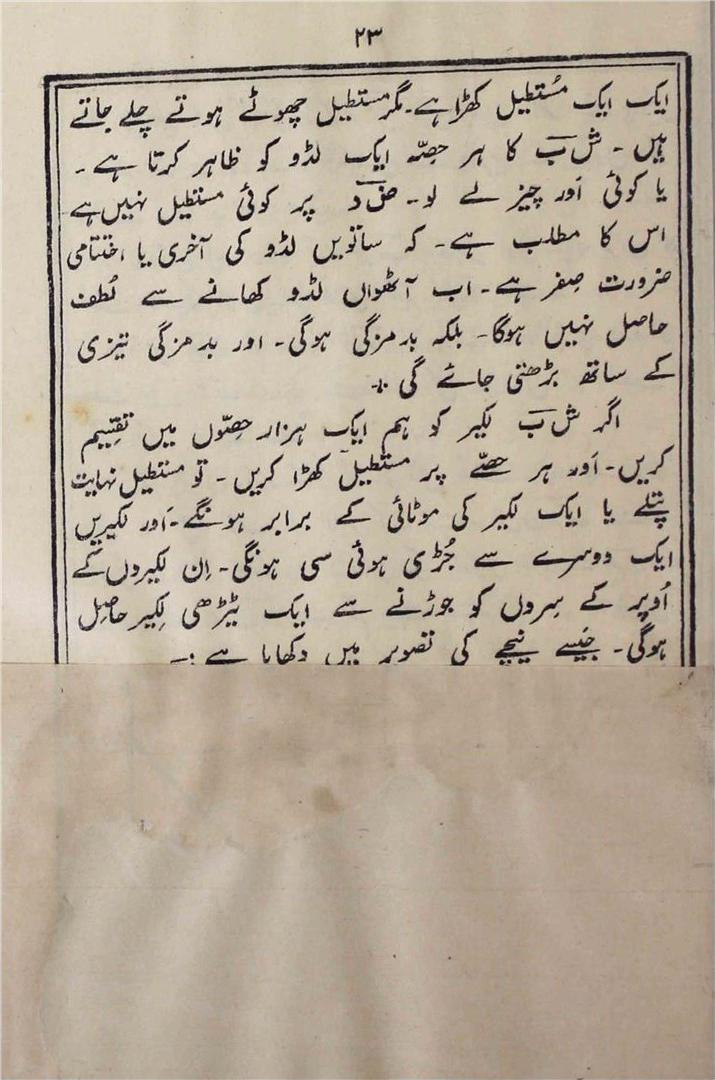 ۲۳
ایک ایک مُستطیل کھڑا ہے۔ مگر مستطیل چھوٹے ہوتے چلے جاتے
ہیں۔ ش ب کا ہر حِصّہ ایک لڈو کو ظاہر کرتا ہے۔
یا کوئی اَور چیز لے لو۔ ض د پر کوئی مستطیل نہیں ہے
اس کا مطلب ہے۔ کہ ساتویں لڈو کی آخری یا اختتامی
ضرورت صِفر ہے۔ اب آٹھواں لڈو کھانے سے لُطف
حاصل نہیں ہوگا۔ بلکہ بدمزگی ہوگی۔ اور بدمزگی تیزی
کے ساتھ بڑھتی جائے گی ؞
اگر ش ب لکیر کو ہم ایک ہزار حِصّوں میں تقسِیم
کریں۔ اَور ہر حصّے پر مستطیل کھڑا کریں۔ تو مستطیل نہایت
پتلے یا ایک لکیر کی موٹائی کے برابر ہونگے۔ اَور لکیریں
ایک دوسرے سے جُڑی ہوئی سی ہونگی۔ اِن لکیروں کے
اُوپر کے سِروں کو جوڑنے سے ایک ٹیڑھی لِکیر حاصِل
ہوگی۔ جَیسے نیچے کی تصویر میں دکھایا ہے :۔